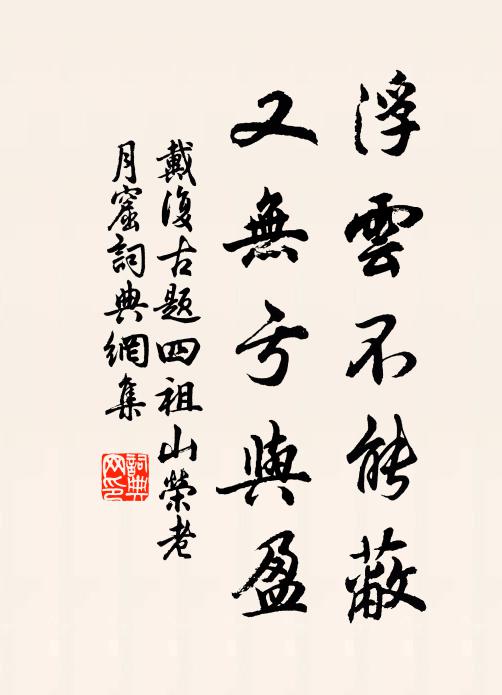 浮雲不能蔽
又無亏與盈
戴復古题四祖山榮老
月窟詞典網集
詞典
网印